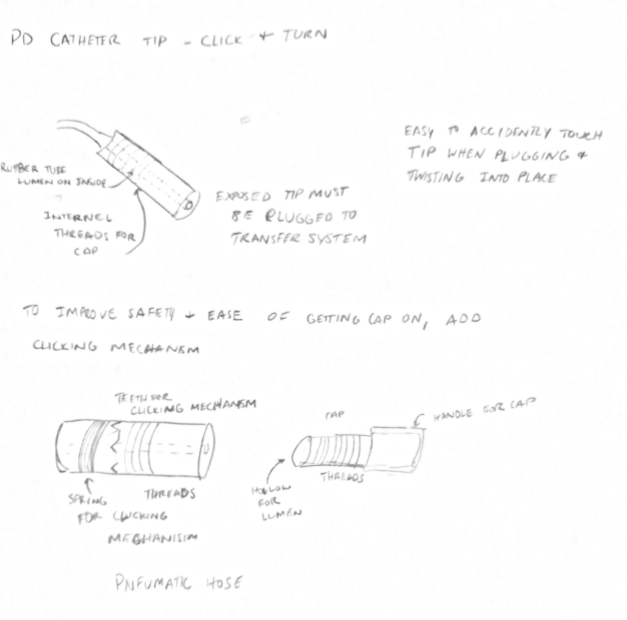 PD CATHETER TIP - CLICK + TURN
RUBBER TUBE
LUMEN ON INSIDE
INTERNEL
THREADS FOR
CAP
EXPOSED TIP MUST
BE PLUGGED TO
TRANSFER SYSTEM
EASY TO ACCIDENTLY TOUCH
TIP WHEN PLUGGING &
TWISTING INTO PLACE
TO IMPROVE SAFETY + EASE OF GETTING CAP ON, ADD
CLICKING MECHANISM
TEETH FOR
CLICKING MECHANISM
SPRING
FOR CLICKING
MECHANISIM
THREADS
CAP
HANDLE FOR CAP
THREADS
HOLLOW
FOR
LUMEN
PNEUMATIC HOSE